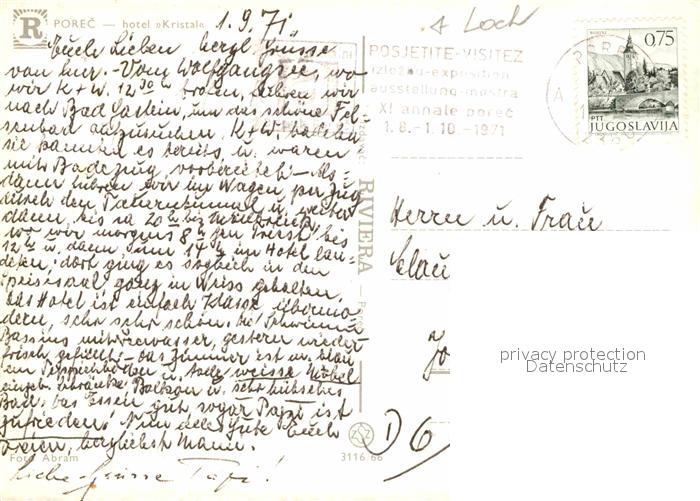 POREČ — hotel »Kristal«
1.9.71
Euch Lieben herzl. Grüsse
von hier. - Vom Wolfgangsee, wo
wir K+W. 12 30 h trafen, fuhren wir
nach Bad Gastein, um das schöne Fel-
senbad aufzusuchen. K+W. hatten
es bereits u. waren
mit Badezeug vorbereitet! - Als-
dann fuhren wir im Wagen per Zug
durch den Tauerntunnel u. weiter
dann, bis ca 20 h bis
wo wir morgens 8 h gen Triest bis
12 h u. dann um 14 h im Hotel lan-
deten; dort ging es sogleich in den
Speisesaal, ganz in Weiss gehalten,
das Hotel ist einfach Klasse, übermo-
dern, sehr sehr schön. Schwimm-
Bassins mit Meerwasser, gestern wieder
frisch gefüllt - das Zimmer ist m. blau
em Teppichboden u. weisse Möbel
eingeb. Schränke Balkon u. sehr hübsches
Bad, das Essen gut, sogar Papi ist
zufrieden! Nun alles Gute Euch
Dreien, herzlichst Mami.
Foto Abram
Liebe Grüsse Papi!
3116/66
RIVIERA
POSJETITE-VISITEZ
izložbu-exposition
ausstellung-mostra
XI annale poreč
1.8.-1.10.-1971
+ Loch
0,75
PTT
JUGOSLAVIJA
Herrn u. Frau
Clau
Jo
D 6
privacy protection
Datenschutz